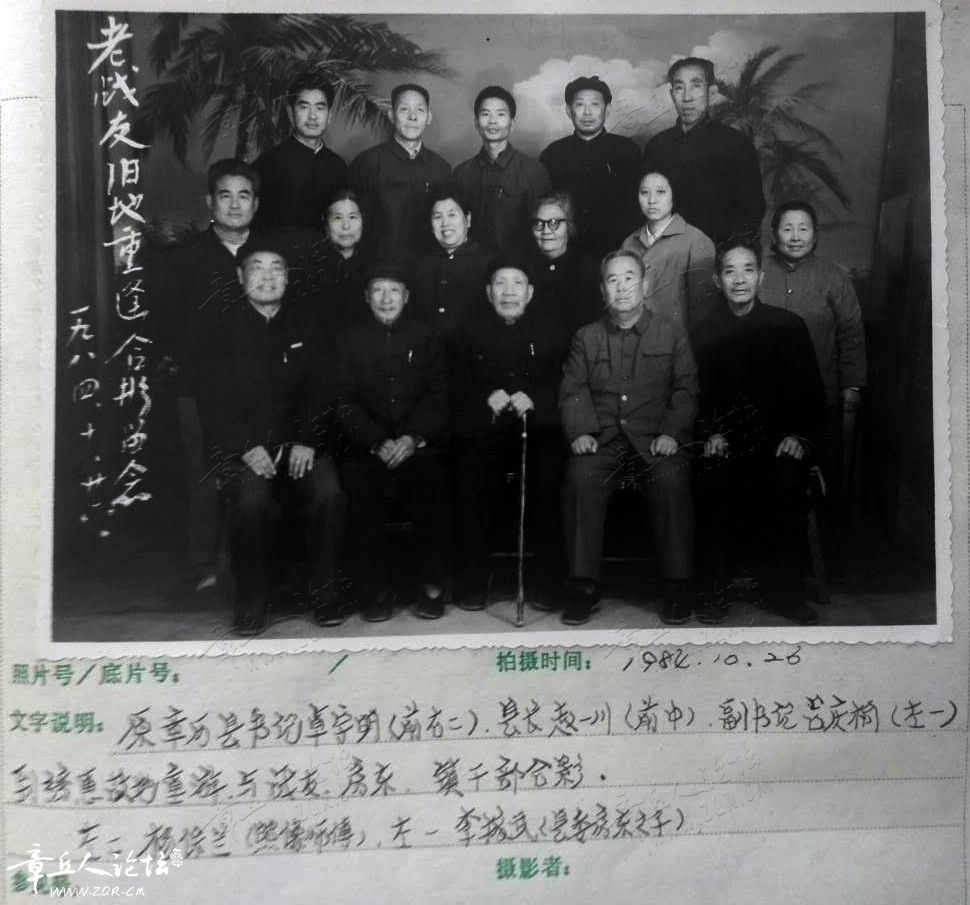 老战友旧地重逢合影留念
一九八四.十.廿六.
照片号/底片号: /
拍摄时间: 1984.10.26
文字说明: 原章历县书记卓宇明(前右二)、县长惠一川(前中)、副书记庆桐(左一)
到故地重游与战友、房东、镇干部合影.
左二 杨保兰(照像师傅)、左一 李武(县委房东之子)
摄影者:
章丘人论坛
www.ZQR.CN